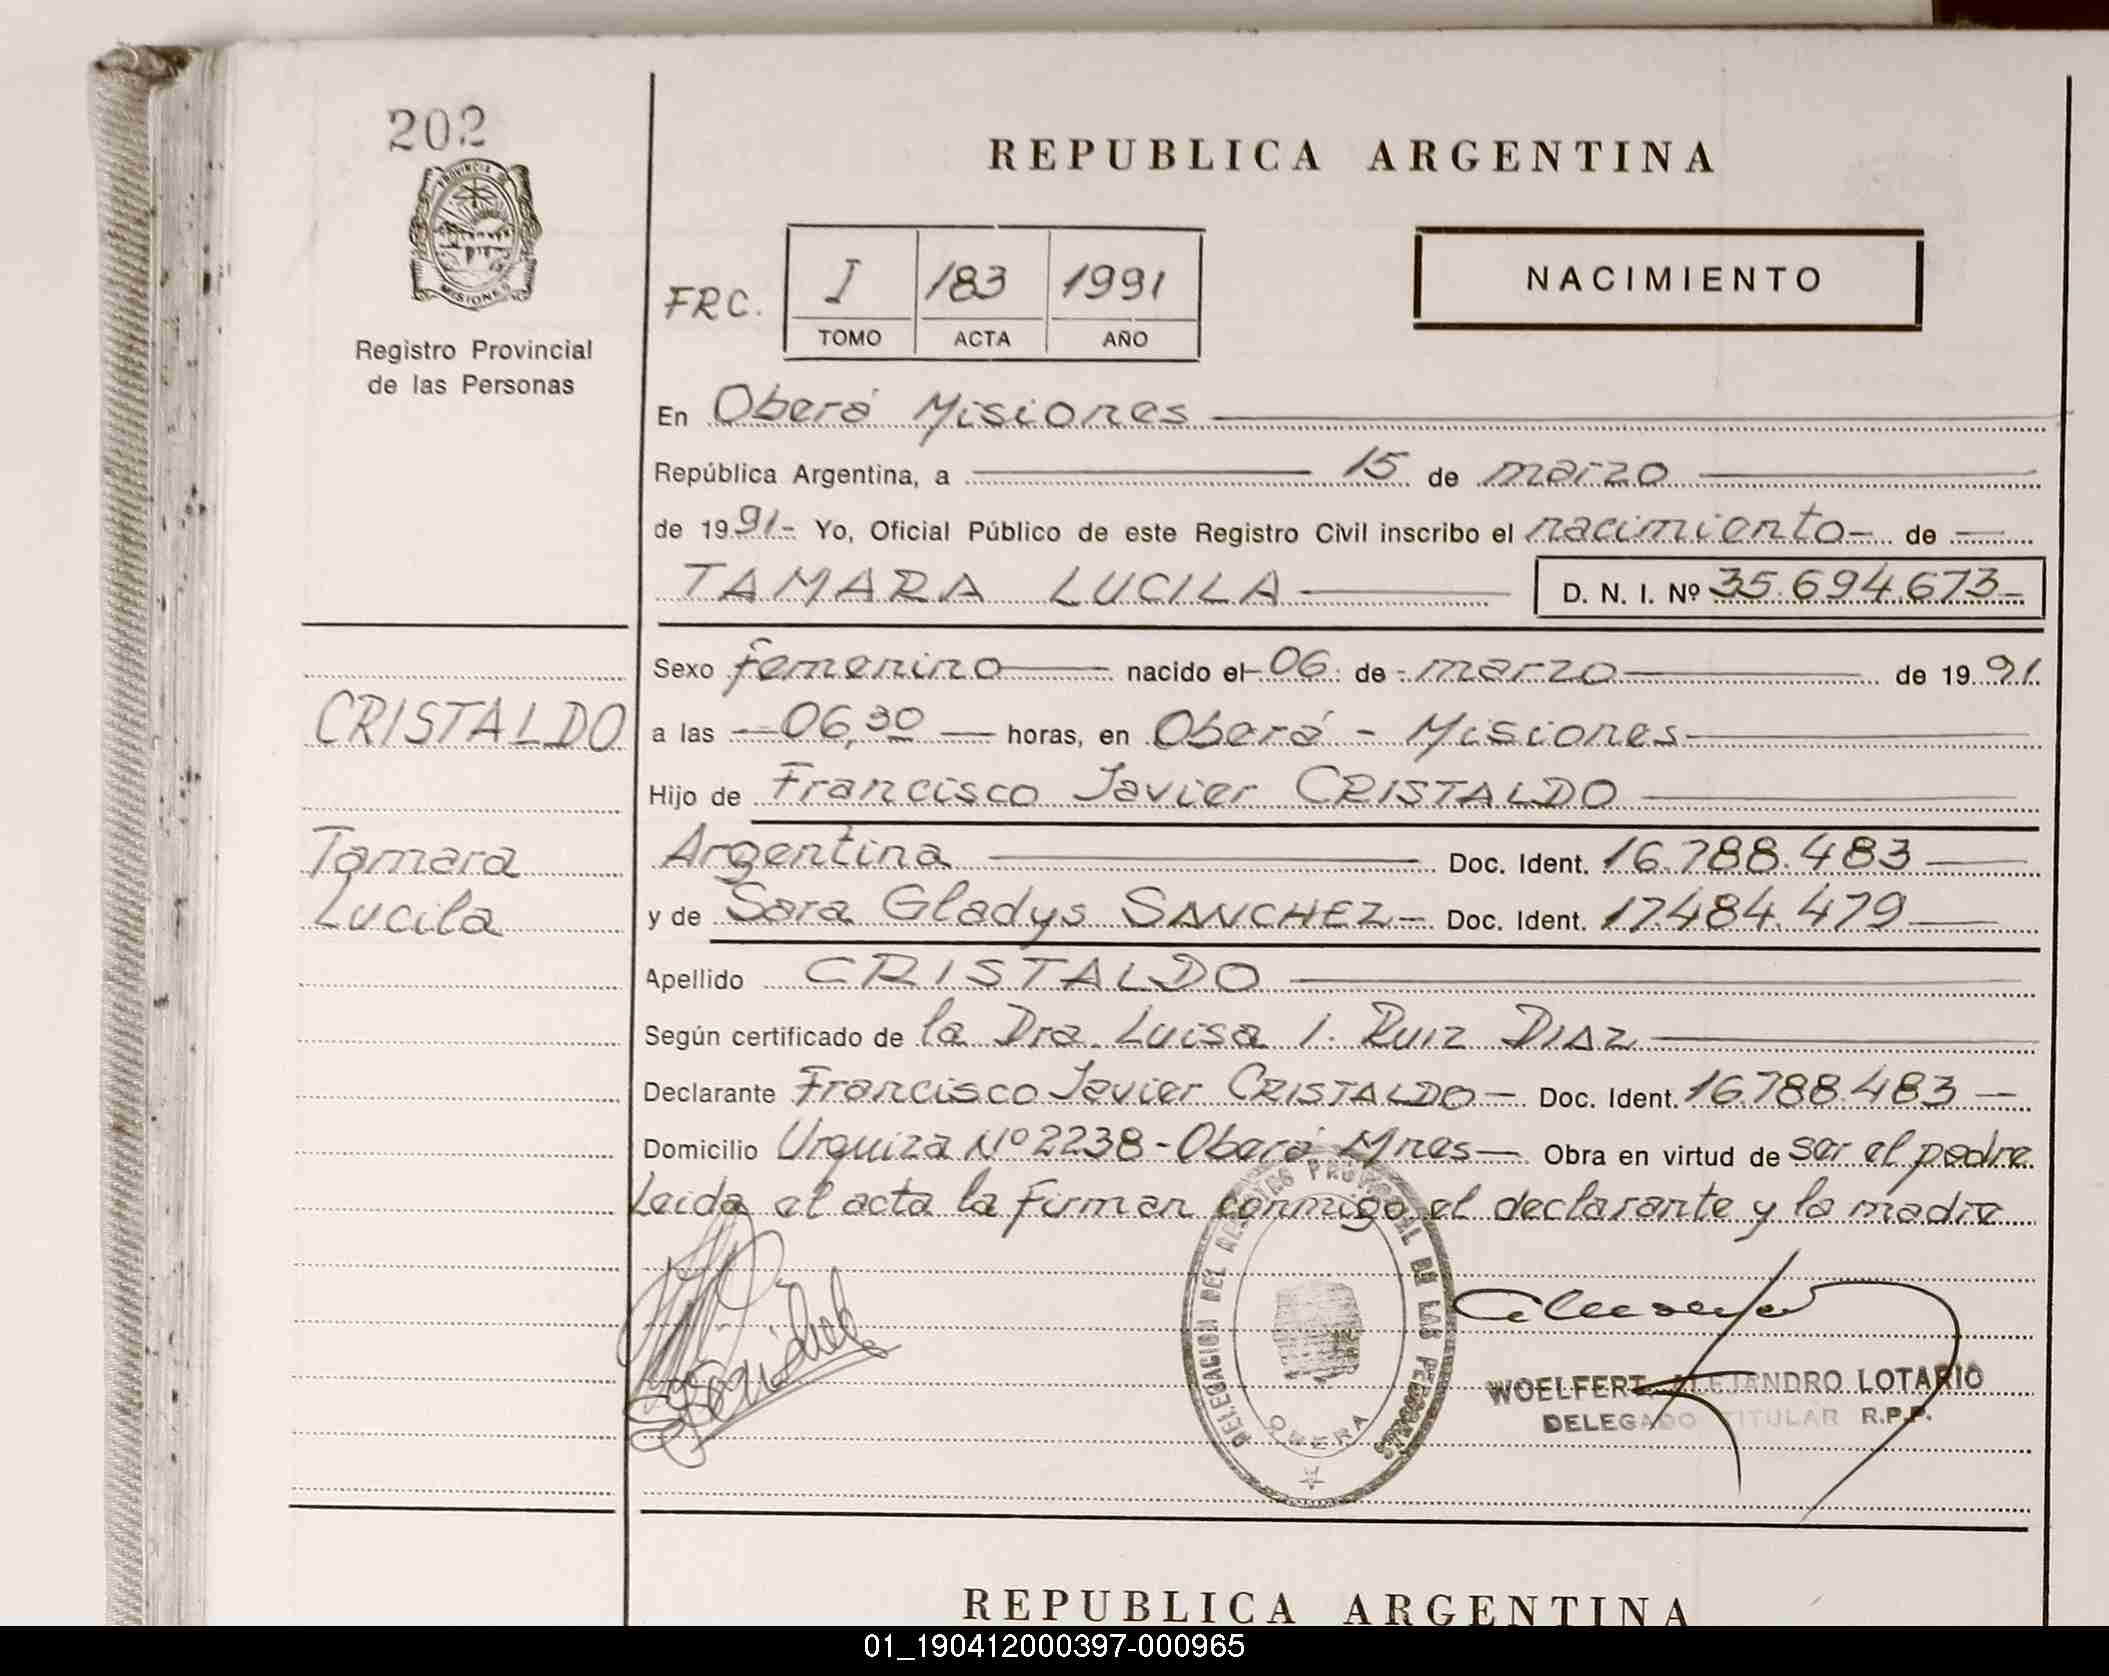 202
PROVINCIA DE
MISIONES
Registro Provincial
de las Personas
REPUBLICA ARGENTINA
FRC.
I 183 1991
TOMO ACTA AÑO
NACIMIENTO
En Oberá Misiones
República Argentina, a 15 de marzo
de 1991- Yo, Oficial Público de este Registro Civil inscribo el nacimiento- de
TAMARA LUCILA D. N. I. Nº 35.694.673-
Sexo femenino nacido el 06 de marzo de 1991
a las 06,30 horas, en Oberá - Misiones
Hijo de Francisco Javier CRISTALDO
Argentina Doc. Ident. 16.788.483
y de Sara Gladys SANCHEZ- Doc. Ident. 17.484.479
Apellido CRISTALDO
Según certificado de la Dra. Luisa I. Ruiz DIAZ
Declarante Francisco Javier CRISTALDO- Doc. Ident. 16.788.483
Domicilio Urquiza Nº 2238 - Oberá Mnes- Obra en virtud de ser el padre
Leida el acta la firman conmigo el declarante y la madre
CRISTALDO
Tamara
Lucila
DELEGACION DEL REGISTRO PROVINCIAL DE LAS PERSONAS
OBERA
WOELFERT, ALEJANDRO LOTARIO
DELEGADO TITULAR R.P.P.
REPUBLICA ARGENTINA
01_190412000397-000965